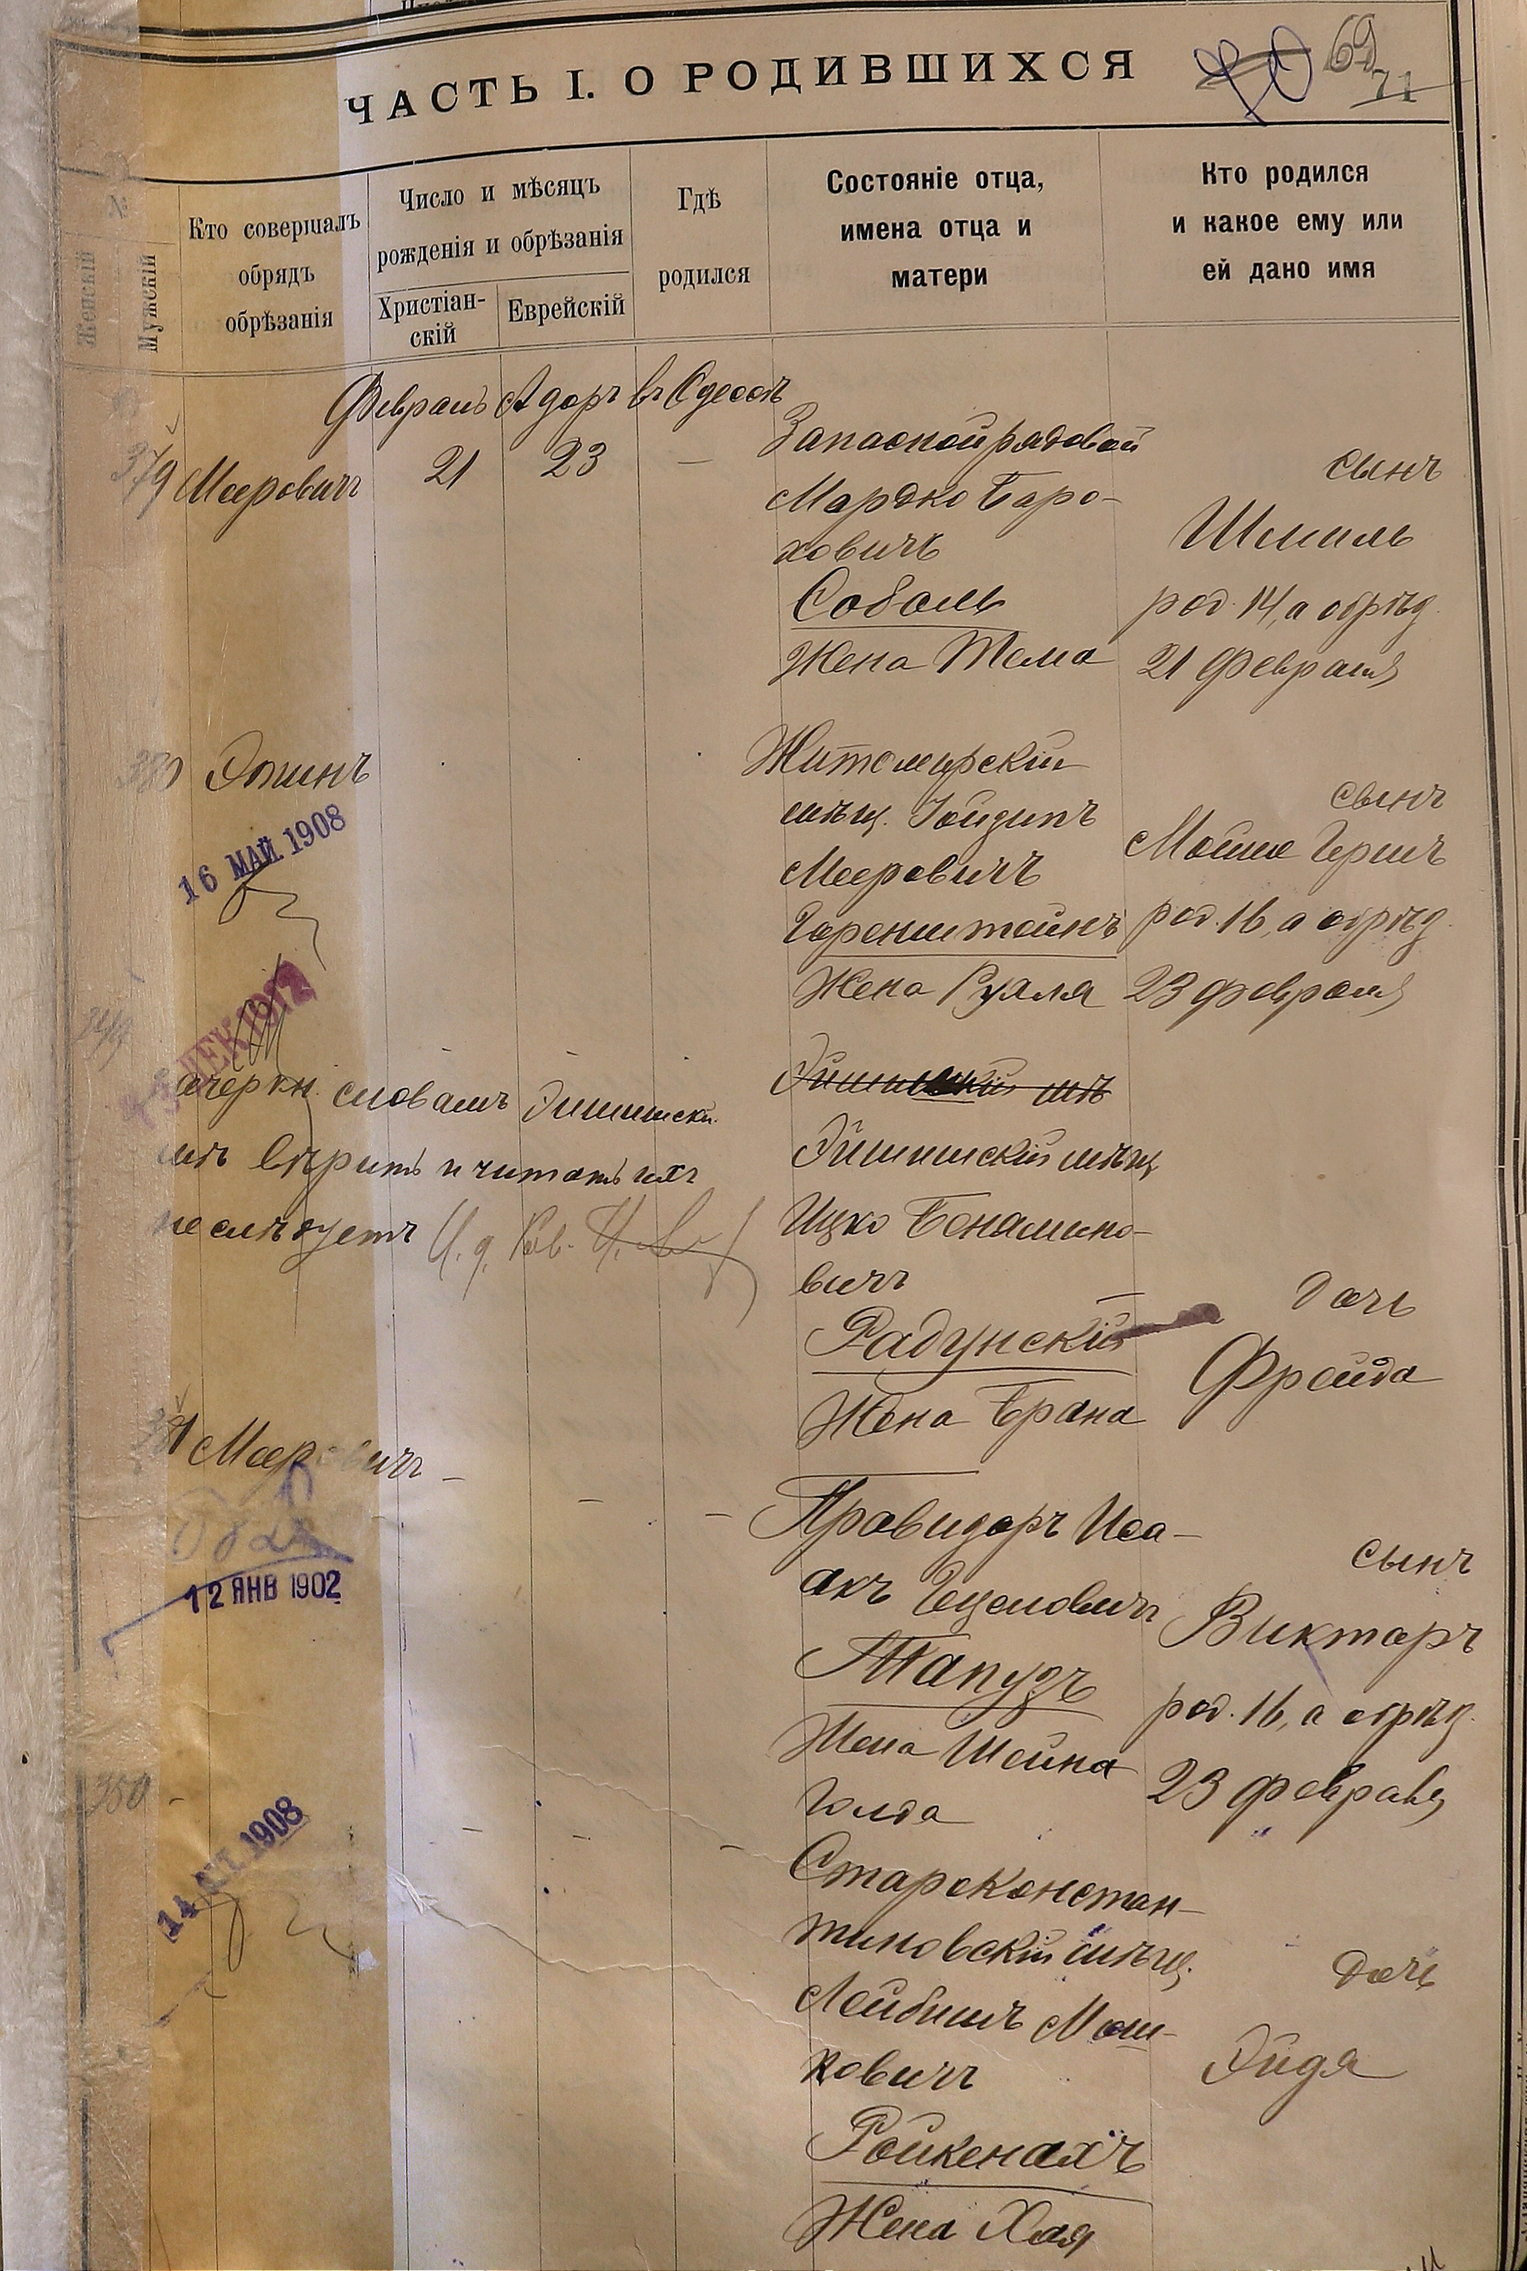 ЧАСТЬ I. О РОДИВШИХСЯ
70 69
71
№
Женскій
Мужскій
Кто совершалъ
обрядъ
обрѣзанія
Число и мѣсяцъ
рожденія и обрѣзанія
Христіан-
скій
Еврейскій
Гдѣ
родился
Состояніе отца,
имена отца и
матери
Кто родился
и какое ему или
ей дано имя
Февраль Адаръ въ Одессѣ
379 Мееровичъ 21 23 —
Запасной рядовой
Мардко Баро-
ховичъ
Соболь
Жена Тема
сынъ
Шмиль
род. 14, а обрѣз.
21 февраля
380 Эпинъ
16 МАЙ 1908
Житомирскій
мѣщ. Іойзипъ
Мееровичъ
Горенштейнъ
Жена Рухля
сынъ
Мойше Герш
род. 16, а обрѣз.
23 февраля
349
ДЕК 1912
зачеркн. словамъ Эйшишскій
мѣ вѣрить и читать ихъ
не слѣдуетъ И. д. Рав.
Эйшишскій мѣ
Эйшишскій мѣщ
Ицко Бенамино-
вичъ
Радунскій
Жена Брана
дочь
Фрейда
381 Мееровичъ —
12 ЯНВ 1902
Провизоръ Иса-
акъ Гецеловичъ
Тапузъ
Жена Шейна
Голда
сынъ
Викторъ
род. 16, а обрѣз.
23 февраля
350 -
14 1908
Староконстан-
тиновскій мѣщ.
Лейбишъ Мош-
ковичъ
Ройкенахъ
Жена Хая
дочь
Эйдя